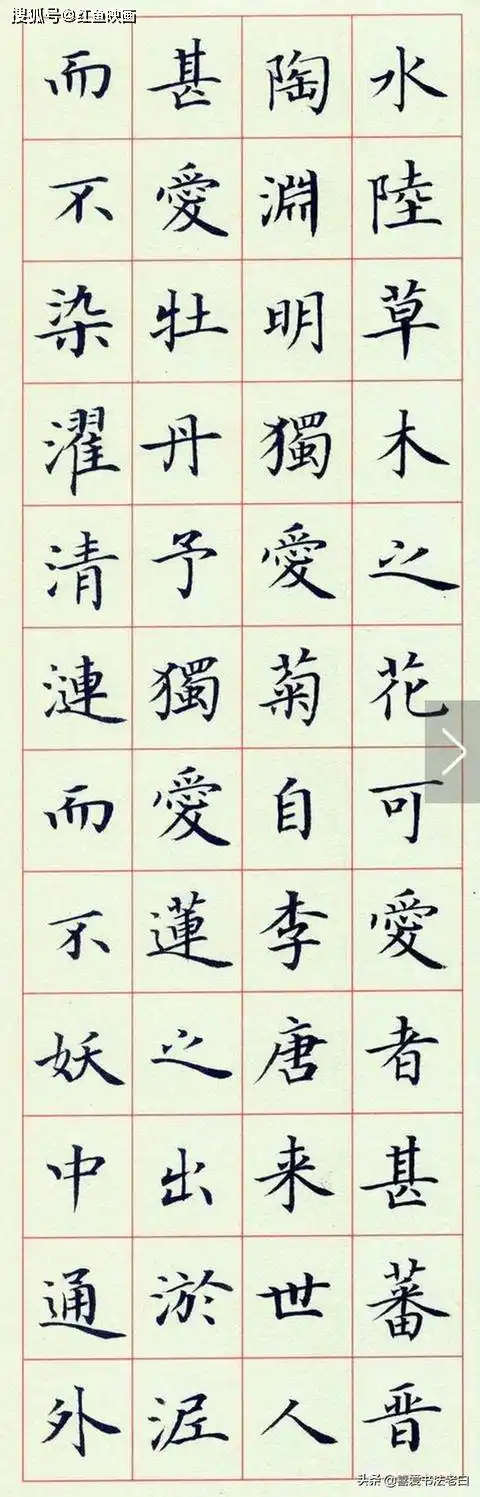 搜狐号@红鱼映画
水陸草木之花可愛者甚蕃晋
陶淵明獨愛菊自李唐来世人
甚愛牡丹予獨愛蓮之出淤泥
而不染濯清漣而不妖中通外
头条@喜爱书法老白